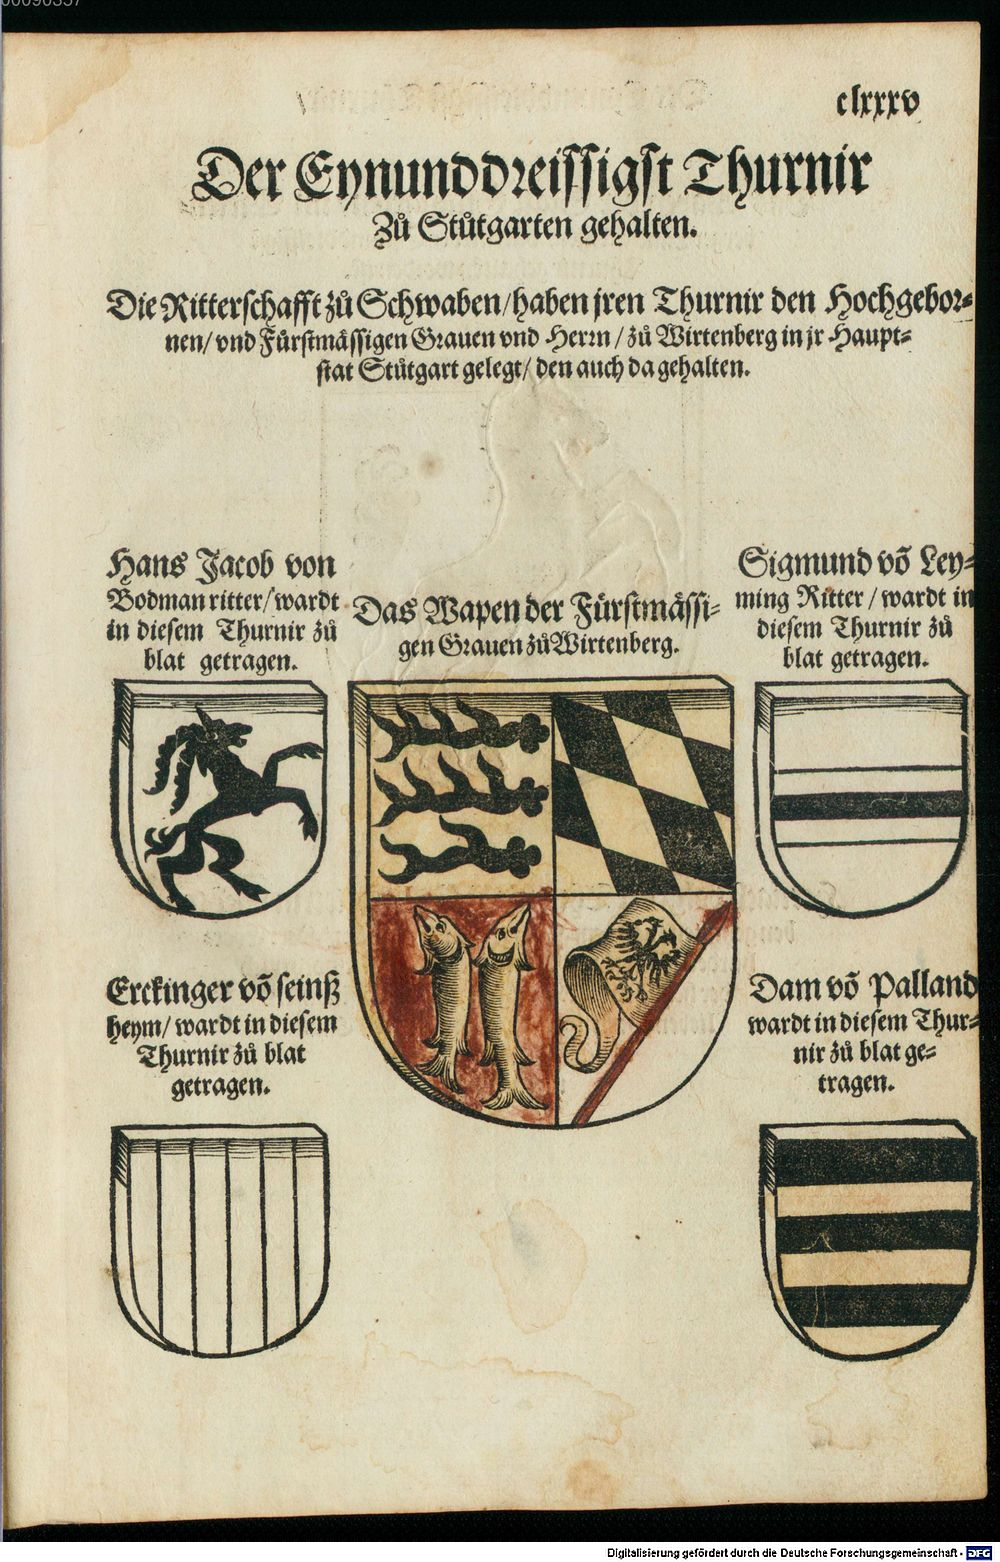 clxxxv
Der Eynunddreissigst Thurnir
Zů Stůtgarten gehalten.
Die Ritterschafft zů Schwaben/ haben jren Thurnir den Hochgebor=
nen/ vnd Fürstmässigen Grauen vnd Herrn/ zů Wirtenberg in jr Haupt=
stat Stůtgart gelegt/ den auch da gehalten.
Hans Jacob von
Bodman ritter/ wardt
in diesem Thurnir zů
blat getragen.
Das Wapen der Fürstmässi=
gen Grauen zů Wirtenberg.
Sigmund võ Ley=
ming Ritter/ wardt in
diesem Thurnir zů
blat getragen.
Erckinger võ seinß
heym/ wardt in diesem
Thurnir zů blat
getragen.
Dam võ Palland
wardt in diesem Thur=
nir zů blat ge=
tragen.
Digitalisierung gefördert durch die Deutsche Forschungsgemeinschaft - DFG